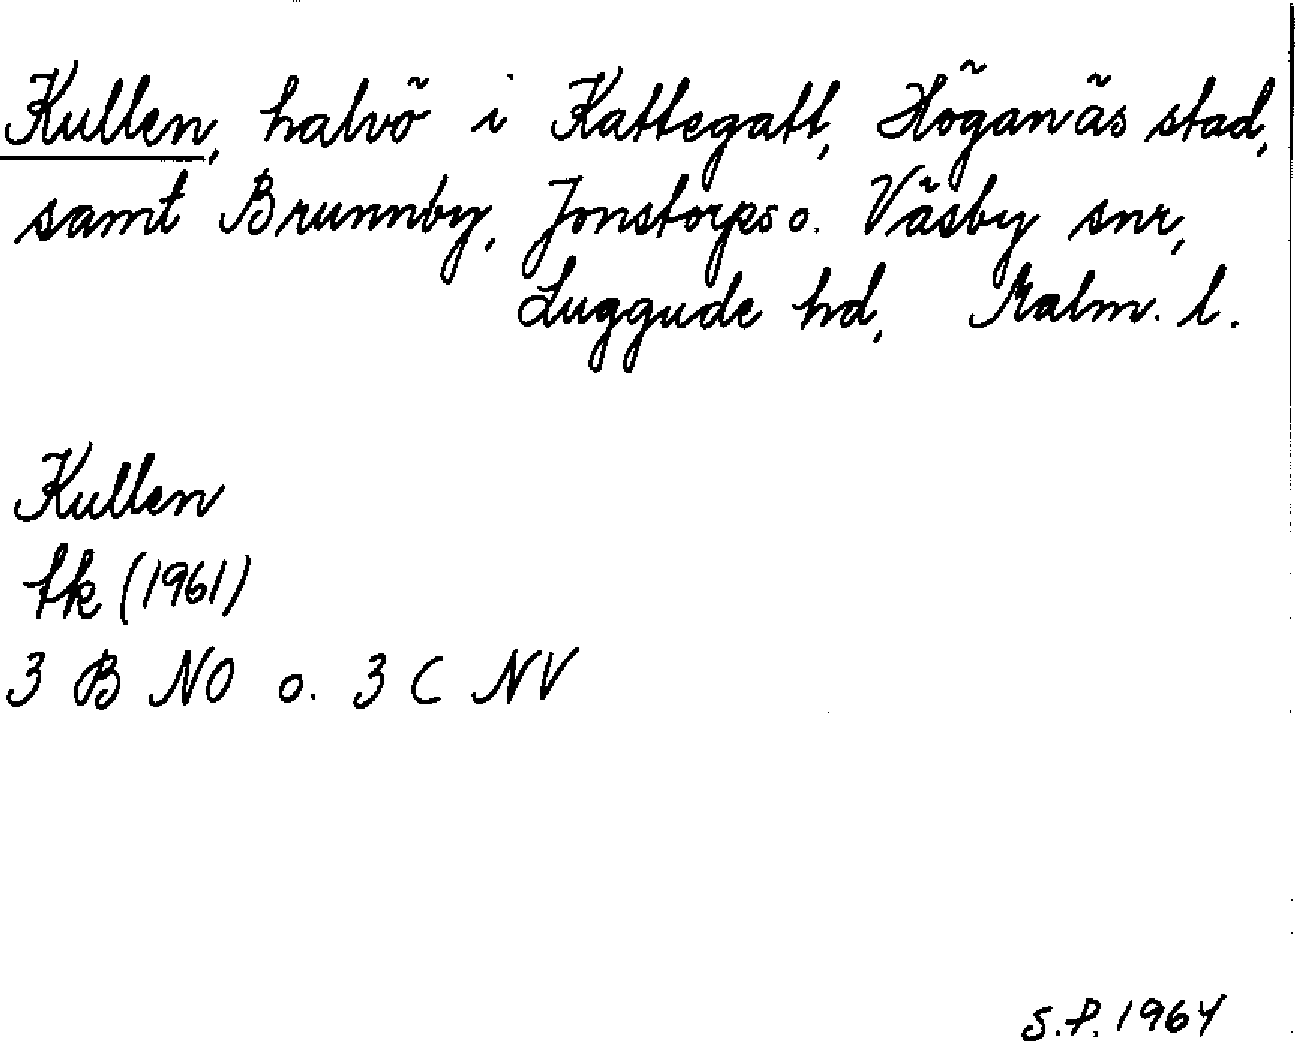 Kullen, halvö i Kattegatt, Höganäs stad,
samt Brunnby, Jonstorps o. Väsby snr,
Luggude hd, Malm. l.
Kullen
tk (1961)
3 B NO o. 3 C NV
S.P. 1964